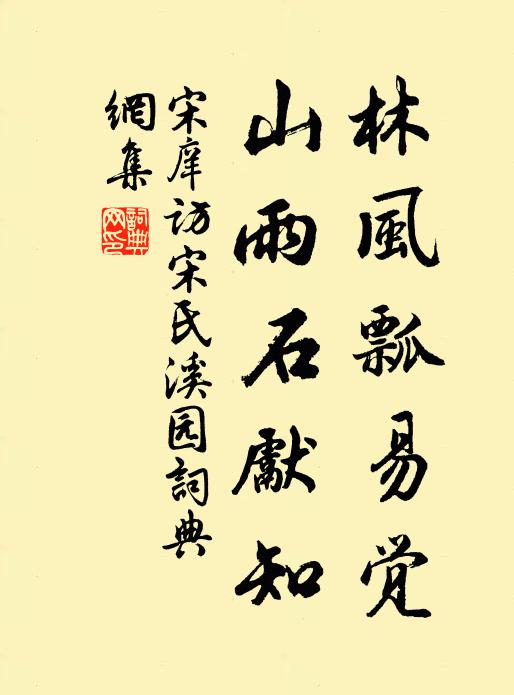 林風瓢易觉
山雨石獻知
宋庠访宋氏溪园詞典
網集
詞典網印